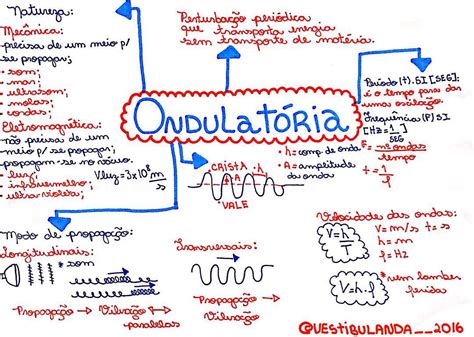 Natureza:
Mecânica:
• precisa de um meio p/
se propagar;
• som;
• mar;
• ultrassom;
• molas;
• cordas;
Eletromagnética:
• não precisa de um
meio p/ se propagar,
propagam-se no vácuo.
• luz;
• infravermelho;
• ultravioleta;
Vluz = 3×10⁸ m/s
Perturbação periódica
que transporta energia
sem transporte de matéria.
ONDULATÓRIA
Período (t). SI [SEG]:
é o tempo para dar
uma oscilação.
Frequência (F) SI
[Hz = 1/SEG]
F = nº ondas/tempo
t = 1/f
CRISTA
λ
A
VALE
λ = comp. de onda
A = amplitude
da onda
Modo de propagação:
Longitudinais:
* som
Propagação → Vibração →
paralelas
Transversais:
Propagação →
Vibração
Velocidades das ondas:
V = λ/T
V = m/s t = s
λ = m
F = Hz
V = λ.f
* vem lamber
ferida
@VESTIBULANDA__2016